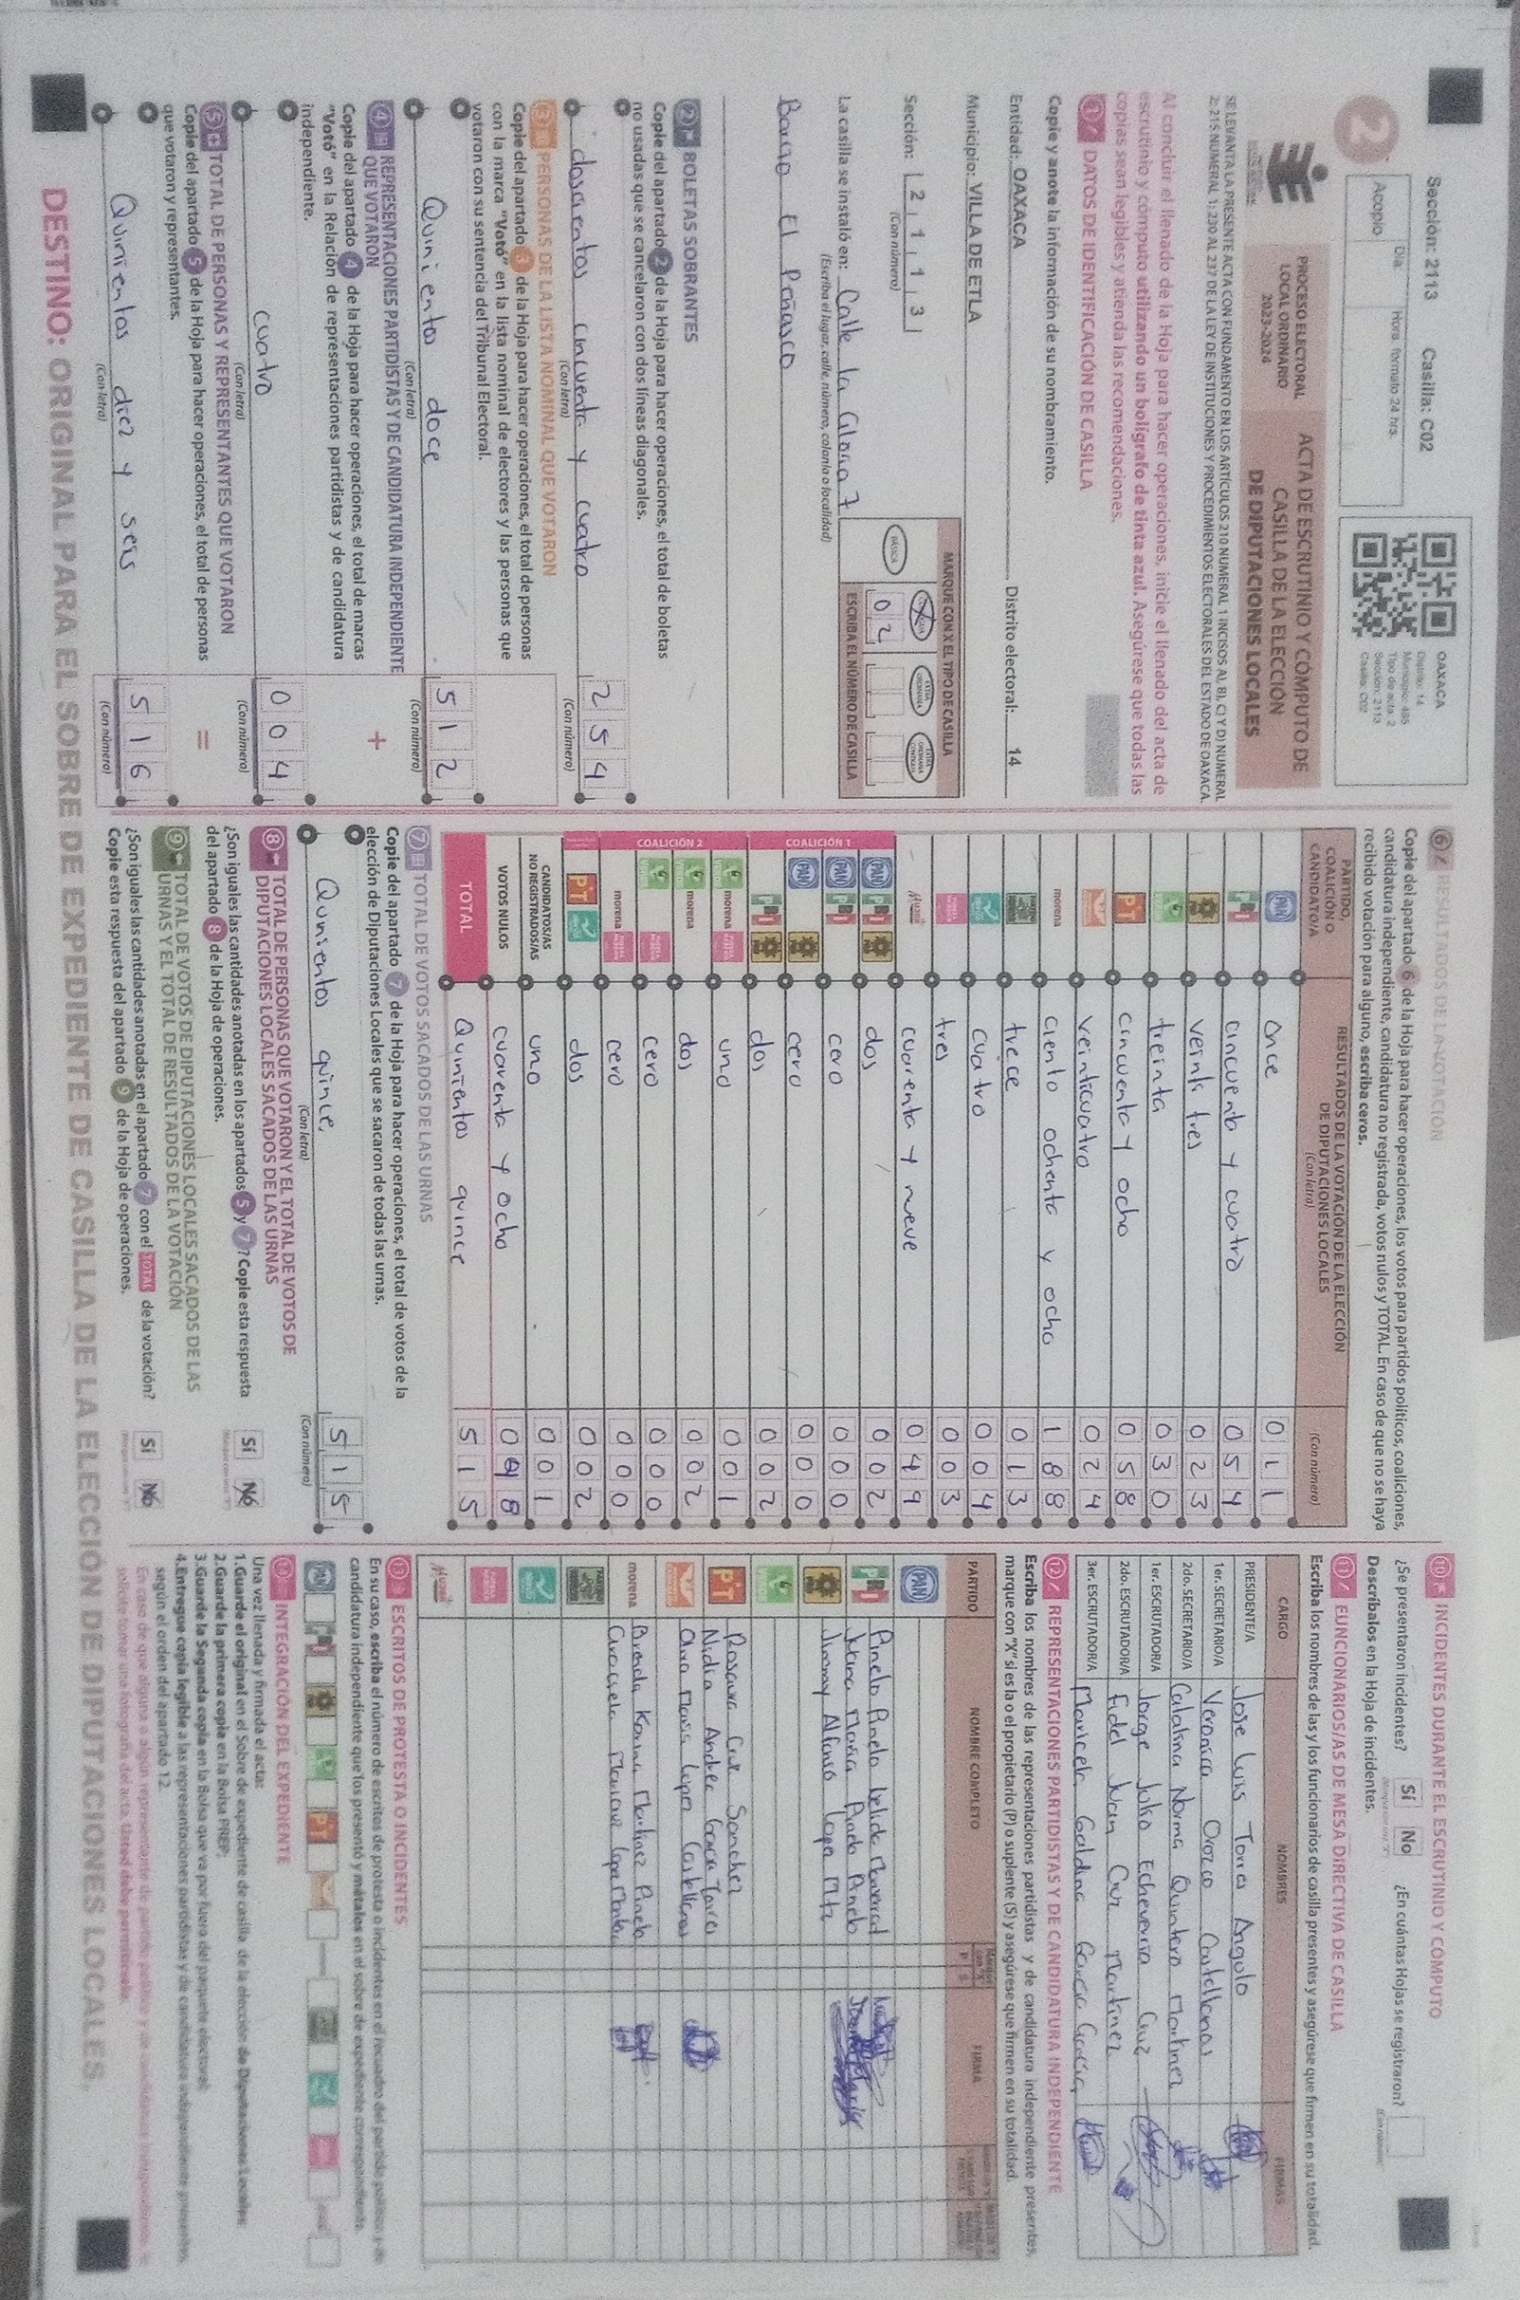 Sección: 2113 Casilla: C02
2
Acopio
Día
Hora formato 24 hrs.
OAXACA
Distrito: 14
Municipio: 485
Tipo de acta: 2
Sección: 2113
Casilla: C02
PROCESO ELECTORAL
LOCAL ORDINARIO
2023-2024
ACTA DE ESCRUTINIO Y CÓMPUTO DE
CASILLA DE LA ELECCIÓN
DE DIPUTACIONES LOCALES
SE LEVANTA LA PRESENTE ACTA CON FUNDAMENTO EN LOS ARTÍCULOS 210 NUMERAL 1 INCISOS A), B), C) Y D) NUMERAL
2; 215 NUMERAL 1; 230 AL 237 DE LA LEY DE INSTITUCIONES Y PROCEDIMIENTOS ELECTORALES DEL ESTADO DE OAXACA.
Al concluir el llenado de la Hoja para hacer operaciones, inicie el llenado del acta de
escrutinio y cómputo utilizando un bolígrafo de tinta azul. Asegúrese que todas las
copias sean legibles y atienda las recomendaciones.
1 DATOS DE IDENTIFICACIÓN DE CASILLA
Copie y anote la información de su nombramiento.
Entidad: OAXACA Distrito electoral: 14
Municipio: VILLA DE ETLA
Sección: 2 1 1 3
(Con número)
MARQUE CON X EL TIPO DE CASILLA
BÁSICA
ESCRIBA EL NÚMERO DE CASILLA
0 2
La casilla se instaló en: Calle la Gloria 7
(Escriba el lugar, calle, número, colonia o localidad)
Barrio El Peñasco
2 BOLETAS SOBRANTES
Copie del apartado 2 de la Hoja para hacer operaciones, el total de boletas
no usadas que se cancelaron con dos líneas diagonales.
doscientos cincuenta y cuatro 2 5 4
(Con letra) (Con número)
3 PERSONAS DE LA LISTA NOMINAL QUE VOTARON
Copie del apartado 3 de la Hoja para hacer operaciones, el total de personas
con la marca "Votó" en la lista nominal de electores y las personas que
votaron con su sentencia del Tribunal Electoral.
Quinientos doce 5 1 2
(Con letra) (Con número)
4 REPRESENTACIONES PARTIDISTAS Y DE CANDIDATURA INDEPENDIENTE
QUE VOTARON
+
Copie del apartado 4 de la Hoja para hacer operaciones, el total de marcas
"Votó" en la Relación de representaciones partidistas y de candidatura
independiente.
cuatro 0 0 4
(Con letra) (Con número)
5 TOTAL DE PERSONAS Y REPRESENTANTES QUE VOTARON
=
Copie del apartado 5 de la Hoja para hacer operaciones, el total de personas
que votaron y representantes.
Quinientos diez y seis 5 1 6
(Con letra) (Con número)
6 RESULTADOS DE LA VOTACIÓN
Copie del apartado 6 de la Hoja para hacer operaciones, los votos para partidos políticos, coaliciones,
candidatura independiente, candidatura no registrada, votos nulos y TOTAL. En caso de que no se haya
recibido votación para alguno, escriba ceros.
PARTIDO,
COALICIÓN O
CANDIDATO/A
RESULTADOS DE LA VOTACIÓN DE LA ELECCIÓN
DE DIPUTACIONES LOCALES
(Con letra)
(Con número)
PAN once 0 1 1
PRI cincuenta y cuatro 0 5 4
veinti tres 0 2 3
treinta 0 3 0
PT cincuenta y ocho 0 5 8
veinticuatro 0 2 4
morena ciento ochenta y ocho 1 8 8
trece 0 1 3
cuatro 0 0 4
tres 0 0 3
cuarenta y nueve 0 4 9
COALICIÓN 1
PAN PRI dos 0 0 2
PAN PRI cero 0 0 0
PAN cero 0 0 0
PRI dos 0 0 2
COALICIÓN 2
morena uno 0 0 1
morena dos 0 0 2
cero 0 0 0
morena cero 0 0 0
PT dos 0 0 2
CANDIDATOS/AS
NO REGISTRADOS/AS uno 0 0 1
VOTOS NULOS cuarenta y ocho 0 4 8
TOTAL Quinientos quince 5 1 5
7 TOTAL DE VOTOS SACADOS DE LAS URNAS
Copie del apartado 7 de la Hoja para hacer operaciones, el total de votos de la
elección de Diputaciones Locales que se sacaron de todas las urnas.
Quinientos quince, 5 1 5
(Con letra) (Con número)
8 TOTAL DE PERSONAS QUE VOTARON Y EL TOTAL DE VOTOS DE
DIPUTACIONES LOCALES SACADOS DE LAS URNAS
¿Son iguales las cantidades anotadas en los apartados 5 y 7? Copie esta respuesta
del apartado 8 de la Hoja de operaciones.
Sí No
9 TOTAL DE VOTOS DE DIPUTACIONES LOCALES SACADOS DE LAS
URNAS Y EL TOTAL DE RESULTADOS DE LA VOTACIÓN
¿Son iguales las cantidades anotadas en el apartado 7 con el TOTAL de la votación?
Copie esta respuesta del apartado 9 de la Hoja de operaciones.
Sí No
10 INCIDENTES DURANTE EL ESCRUTINIO Y CÓMPUTO
¿Se presentaron incidentes? Sí No ¿En cuántas Hojas se registraron?
Descríbalos en la Hoja de incidentes.
11 FUNCIONARIOS/AS DE MESA DIRECTIVA DE CASILLA
Escriba los nombres de las y los funcionarios de casilla presentes y asegúrese que firmen en su totalidad.
CARGO NOMBRES FIRMAS
PRESIDENTE/A Jose Luis Torres Angulo
1er. SECRETARIO/A Veronica Orozco Castellanos
2do. SECRETARIO/A Catalina Norma Quintero Martinez
1er. ESCRUTADOR/A Jorge Julio Echeverria Cruz
2do. ESCRUTADOR/A Fidel Juan Cruz Martinez
3er. ESCRUTADOR/A Maricela Galdina Garcia Garcia
12 REPRESENTACIONES PARTIDISTAS Y DE CANDIDATURA INDEPENDIENTE
Escriba los nombres de las representaciones partidistas y de candidatura independiente presentes,
marque con "X" si es la o el propietario (P) o suplente (S) y asegúrese que firmen en su totalidad.
PARTIDO NOMBRE COMPLETO FIRMA
PAN
PRI
Jimmy Alfonso Lopez Mtz
PT Rosaura Cruz Sanchez
Nidia Andrea Garcia Torres
Ana Maria Lopez Castellanos
morena Brenda Karina Martinez Pinelo
13 ESCRITOS DE PROTESTA O INCIDENTES
En su caso, escriba el número de escritos de protesta o incidentes en el recuadro del partido político y de
candidatura independiente que los presentó y métalos en el sobre de expediente correspondiente.
14 INTEGRACIÓN DEL EXPEDIENTE
Una vez llenada y firmada el acta:
1.Guarde el original en el Sobre de expediente de casilla de la elección de Diputaciones Locales;
2.Guarde la primera copia en la Bolsa PREP;
3.Guarde la Segunda copia en la Bolsa que va por fuera del paquete electoral;
4.Entregue copia legible a las representaciones partidistas y de candidatura independiente presentes,
según el orden del apartado 12.
DESTINO: ORIGINAL PARA EL SOBRE DE EXPEDIENTE DE CASILLA DE LA ELECCIÓN DE DIPUTACIONES LOCALES.